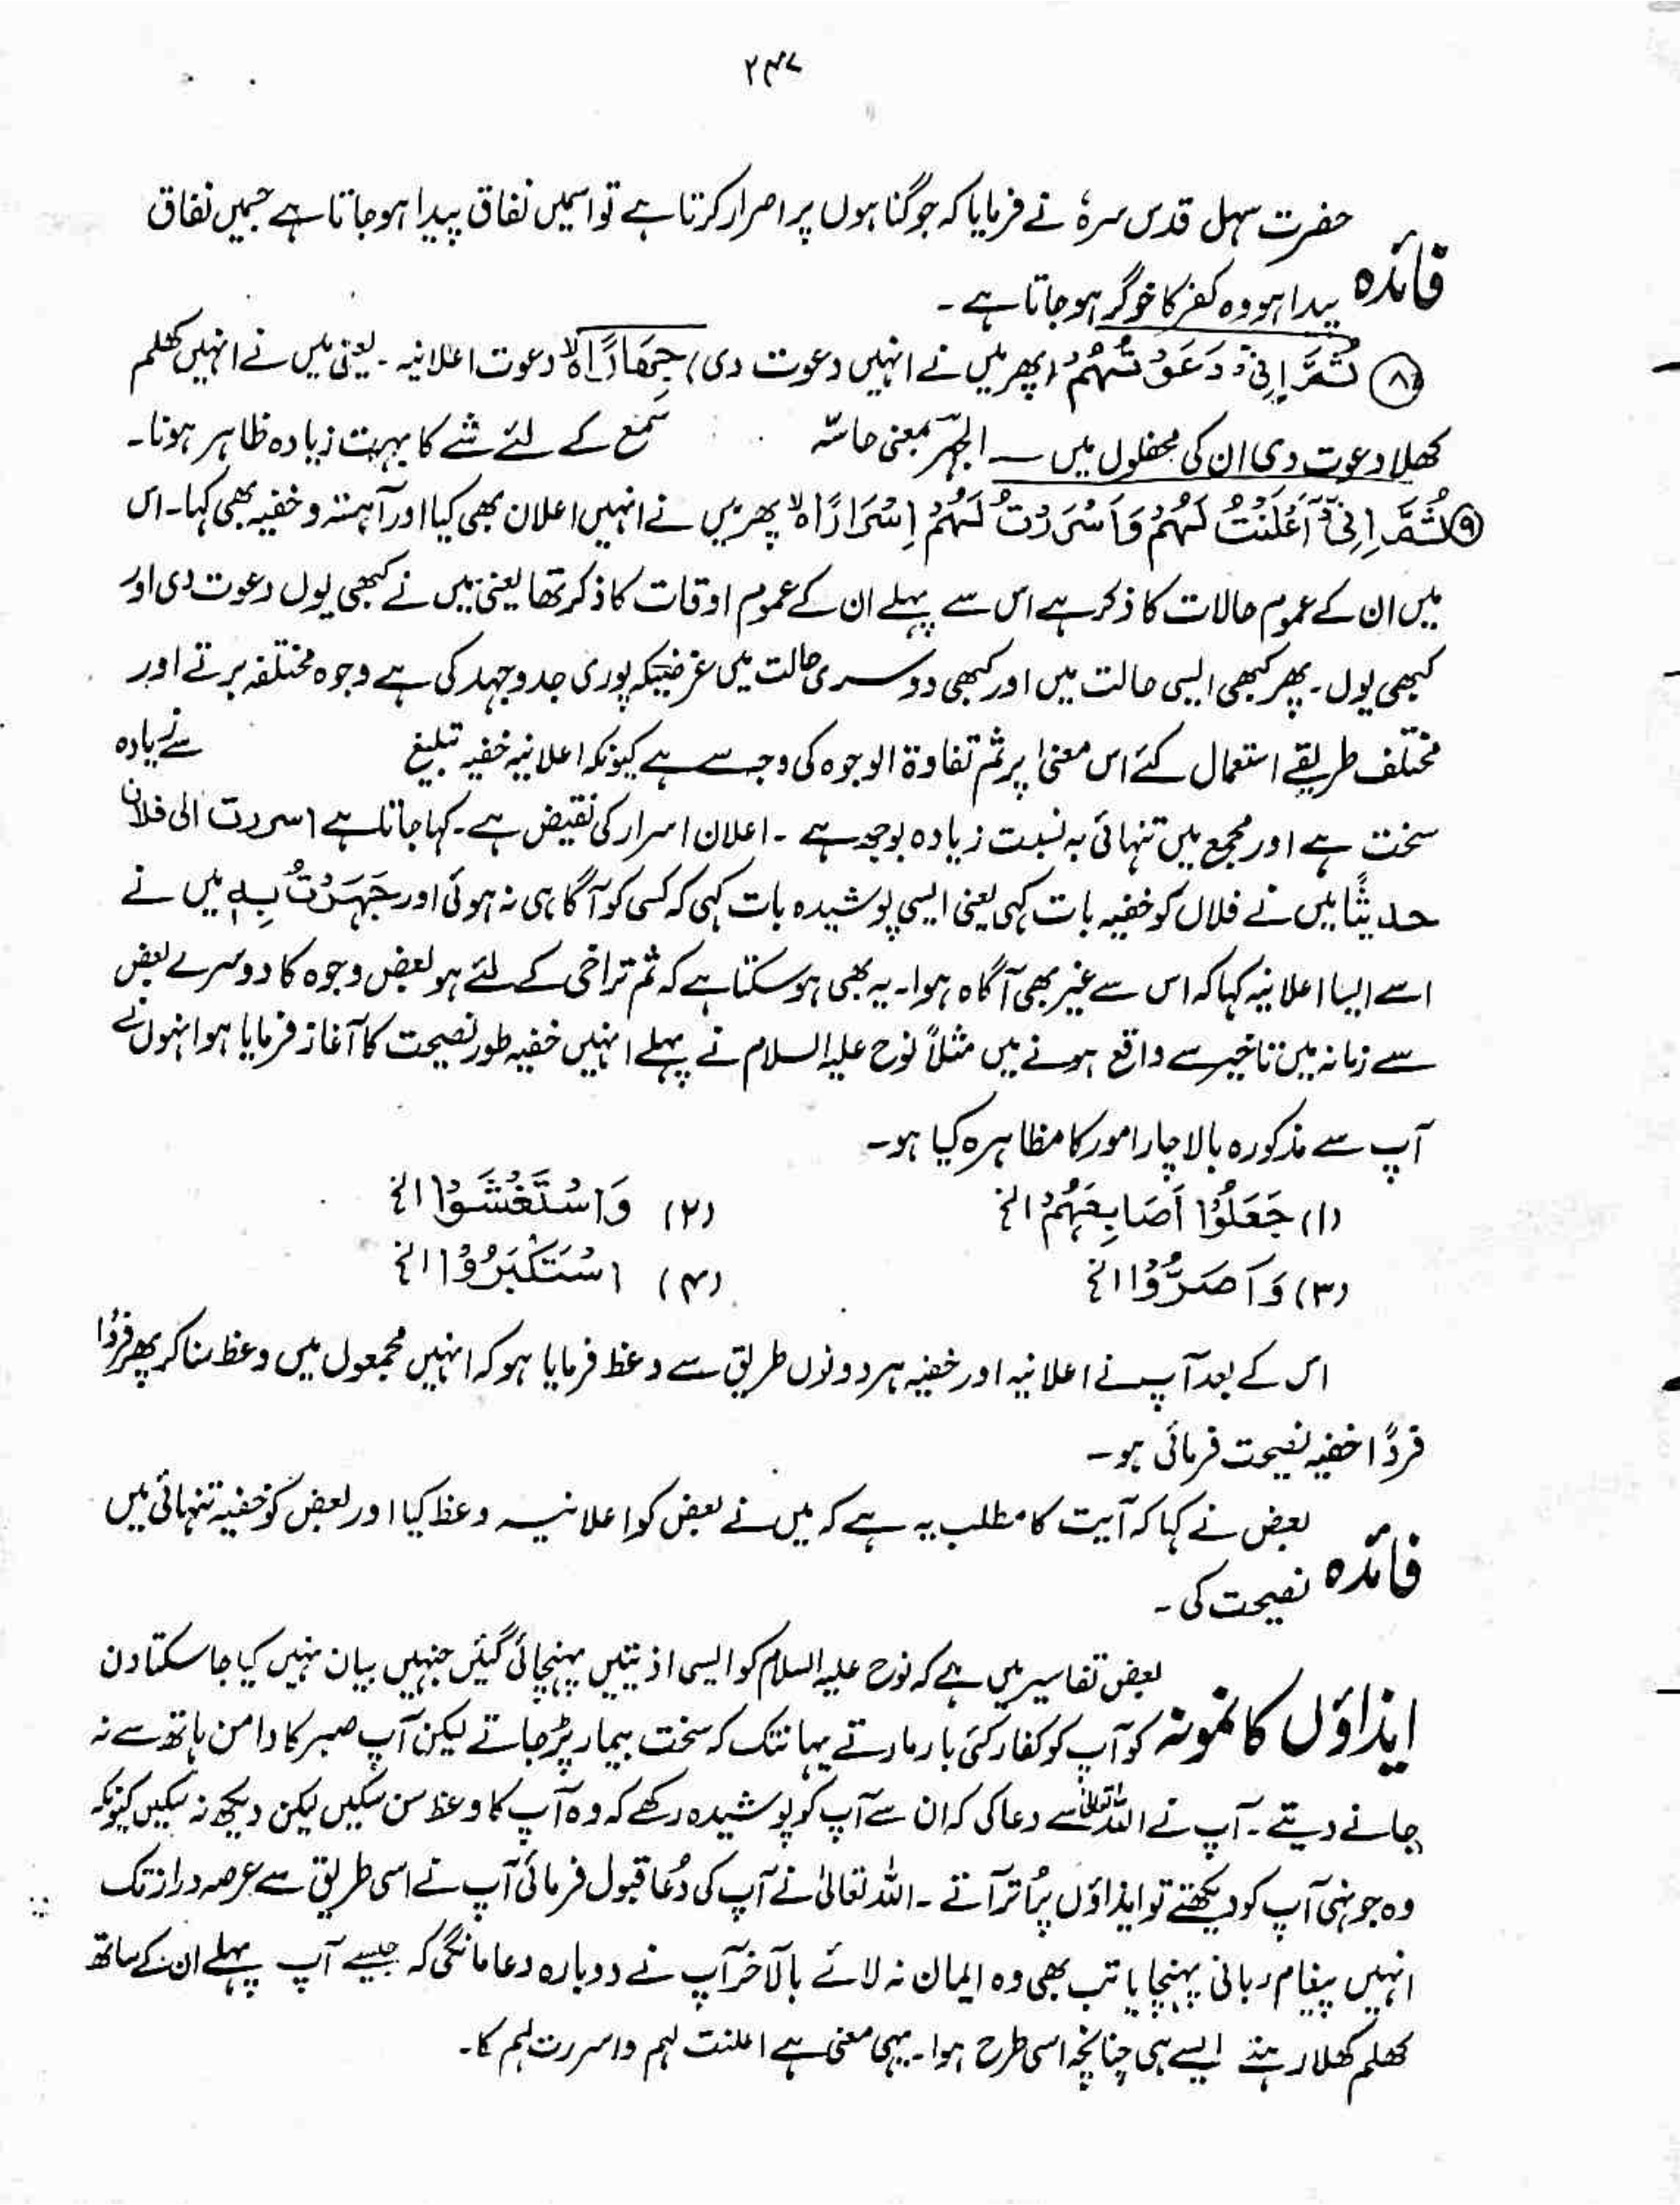 ۲۴۷
حضرت سہل قدس سرہٗ نے فرمایا کہ جو گناہوں پر اصرار کرتا ہے تو اسمیں نفاق پیدا ہو جاتا ہے جسمیں نفاق
فائدہ پیدا ہو وہ کفر کا خوگر ہو جاتا ہے ۔
⑧ ثُمَّ اِنِّیْ دَعَوْتُہُمْ (پھر میں نے انہیں دعوت دی) جِھَارًا ہ لا دعوت اعلانیہ ۔ یعنی میں نے انہیں کھلم
کھلا دعوت دی ان کی محفلوں میں ـــ الجہر بمعنی حاسّہ سمع کے لئے شے کا بہت زیادہ ظاہر ہونا ۔
⑨ ثُمَّ اِنِّیْۤ اَعْلَنْتُ لَہُمْ وَاَسْرَرْتُ لَہُمْ اِسْرَارًا ہ لا پھر میں نے انہیں اعلان بھی کیا اور آہستہ و خفیہ بھی کہا ۔ اس
میں ان کے عموم حالات کا ذکر ہے اس سے پہلے ان کے عموم اوقات کا ذکر تھا یعنی میں نے کبھی یوں دعوت دی اور
کبھی یوں ۔ پھر کبھی ایسی حالت میں اور کبھی دوسری حالت میں غرضیکہ پوری جدوجہد کی ہے وجوہ مختلفہ برتے اور
مختلف طریقے استعمال کئے اس معنیٰ پر ثم تفاوۃ الوجوہ کی وجہ سے ہے کیونکہ اعلانیہ خفیہ تبلیغ سے زیادہ
سخت ہے اور مجمع میں تنہائی بہ نسبت زیادہ بوجھ ہے ۔ اعلان اسرار کی نقیض ہے ۔ کہا جاتا ہے اسررت الی فلان
حدیثًا میں نے فلاں کو خفیہ بات کہی یعنی ایسی پوشیدہ بات کہی کہ کسی کو آگاہی نہ ہوئی اور جَہَرْتُ بِہٖ میں نے
اسے ایسا اعلانیہ کہا کہ اس سے غیر بھی آگاہ ہوا ۔ یہ بھی ہو سکتا ہے کہ ثم تراخی کے لئے ہو بعض وجوہ کا دوسرے بعض
سے زمانہ میں تاخیر سے واقع ہونے میں مثلاً نوح علیہ السلام نے پہلے انہیں خفیہ طور نصیحت کا آغاز فرمایا ہو انہوں نے
آپ سے مذکورہ بالا چار امور کا مظاہرہ کیا ہو ۔
(۱) جَعَلُوْا اَصَابِعَہُمْ الخ (۲) وَاسْتَغْشَوْا الخ
(۳) وَاَصَرُّوْا الخ (۴) اسْتَکْبَرُوْا الخ
اس کے بعد آپ نے اعلانیہ اور خفیہ ہر دونوں طریق سے وعظ فرمایا ہو کہ انہیں مجمعوں میں وعظ سنا کر پھر فرداً
فرداً خفیہ نصیحت فرمائی ہو ۔
بعض نے کہا کہ آیت کا مطلب یہ ہے کہ میں نے بعض کو اعلانیہ وعظ کیا اور بعض کو خفیہ تنہائی میں
فائدہ نصیحت کی ۔
بعض تفاسیر میں ہے کہ نوح علیہ السلام کو ایسی اذیتیں پہنچائی گئیں جنہیں بیان نہیں کیا جا سکتا دن
ایذاؤں کا نمونہ کو آپ کو کفار کئی بار مارتے یہانتک کہ سخت بیمار پڑ جاتے لیکن آپ صبر کا دامن ہاتھ سے نہ
جانے دیتے ۔ آپ نے اللہ تعالیٰ سے دعا کی کہ ان سے آپ کو پوشیدہ رکھے کہ وہ آپ کا وعظ سن سکیں لیکن دیکھ نہ سکیں کیونکہ
وہ جونہی آپ کو دیکھتے تو ایذاؤں پر اُتر آتے ۔ اللہ تعالیٰ نے آپ کی دُعا قبول فرمائی آپ نے اسی طریق سے عرصہ دراز تک
انہیں پیغام ربانی پہنچایا تب بھی وہ ایمان نہ لائے بالآخر آپ نے دوبارہ دعا مانگی کہ جیسے آپ پہلے ان کے ساتھ
کھلم کھلا رہتے ایسے ہی چنانچہ اسی طرح ہوا ۔ یہی معنی ہے اعلنت لہم واسررت لہم کا ۔